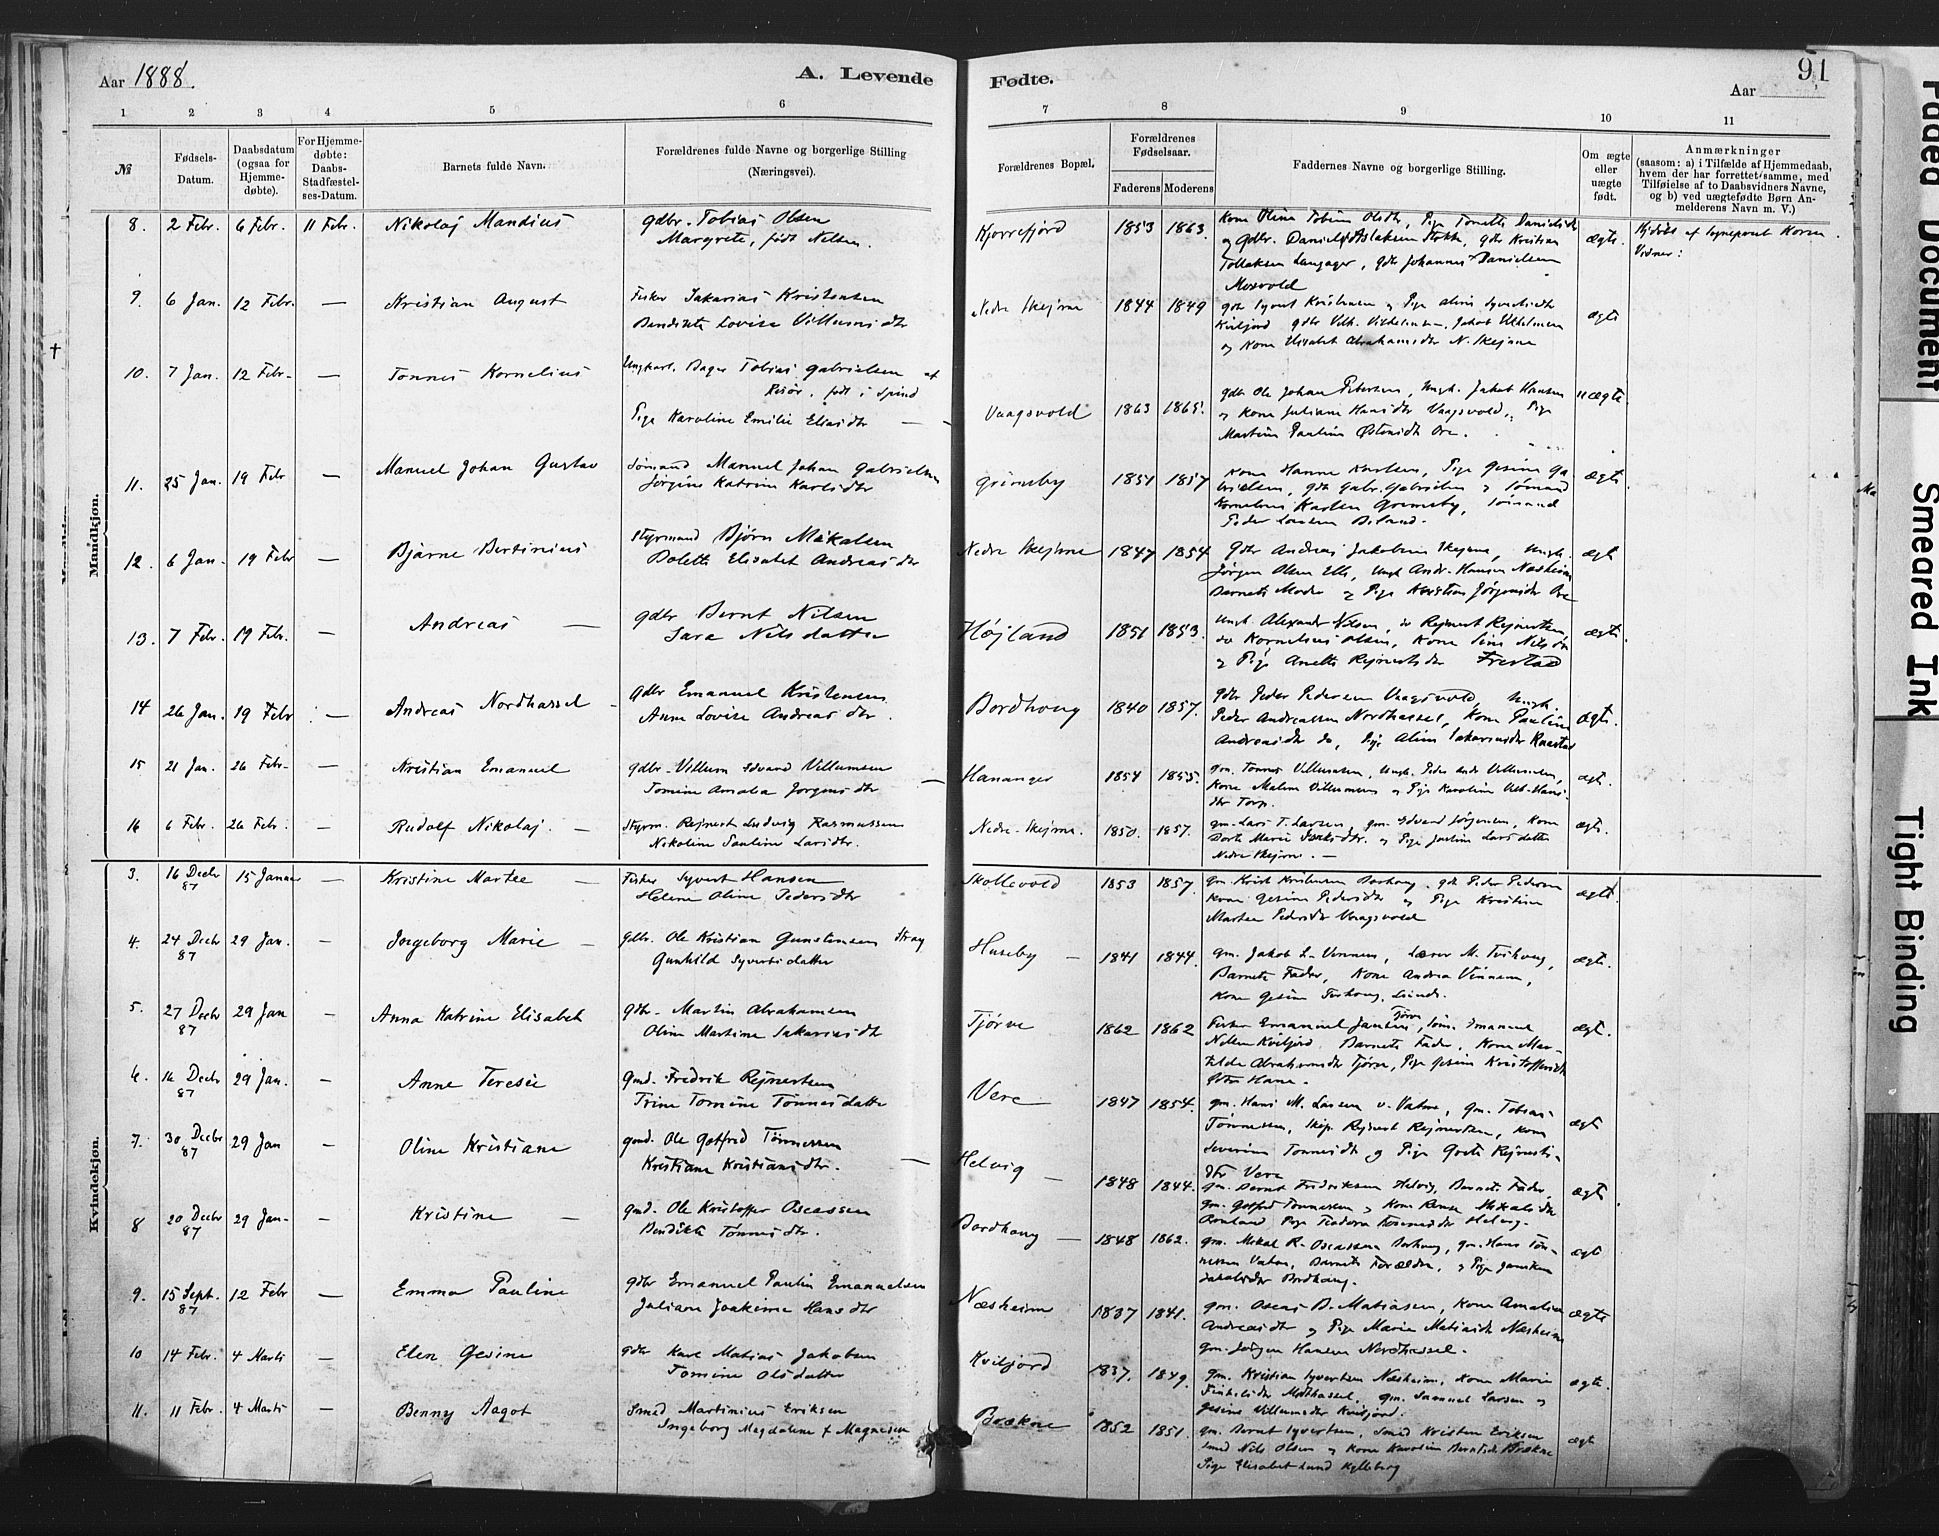 Aar 1888.
A. Levende
Fødte.
91
Aar
1 2 3 4 5 6 7 8 9 10 11
№
Fødsels-
Datum.
Daabsdatum
(ogsaa for
Hjemme-
døbte).
For Hjemme-
døbte:
Daabs-
Stadfæstel-
ses-Datum.
Barnets fulde Navn.
Forældrenes fulde Navne og borgerlige Stilling
(Næringsvei).
Forældrenes Bopæl.
Forældrenes
Fødselsaar.
Faderens Moderens
Faddernes Navne og borgerlige Stilling.
Om ægte
eller
uægte
født.
Anmærkninger
(saasom: a) i Tilfælde af Hjemmedaab,
hvem der har forrettet samme, med
Tilføielse af to Daabsvidners Navne,
og b) ved uægtefødte Børn An-
melderens Navn m. V.)
Mandkjøn.
8. 2 Febr. 6 Febr. 11 Febr. Nikolaj Mandius
gdbr. Tobias Olsen
Margrete, født Nelsen.
Kjørrefjord 1853 1863.
og gdbr. Daniel Aslaksen Stokke, gdb Kristian
Tollaksen Langager, gdb Johannes Danielsen
Mosvold
ægte.
Vidner:
9. 6 Jan. 12 Febr. — Kristian August
Fisker Sakarias Kristensen
Bendikte Lovise Villumsdtr
Nedre Skejme 1844 1849
og Kone Elisabet Abrahamsdtr N. Skejme
ægte
10. 7 Jan. 12 Febr. — Tønnes Kornelius
Ungkarl, Bager Tobias Gabrielsen af
Risør, født i Spind
Pige Karoline Emilie Eliasdtr
Vaagsvold 1863 1865.
gdb Ole Johan Petersen, Ungk. Jakob Hansen
og Kone Juliane Hansdtr Vaagsvold, Pige
Martine Pauline Ore.
uægte.
11. 25 Jan. 19 Febr — Manuel Johan Gustav
Sømand Manuel Johan Gabrielsen
Jørgine Katrine Karlsdtr
Grimsby 1851 1857
Kone Hanne Karlsen, Pige Gesine Ga-
brielsen, gdb Gabr. Gabrielsen og Sømand
Kornelius Karlsen Grimsby, Sømand
Peder Larsen
ægte
12. 6 Jan. 19 Febr — Bjarne Bertinius
Styrmand Bjørn Mikalsen
Bolette Elisabet Andreasdtr
Nedre Skejme 1847 1854
gdbr Andreas Jakobsen Skejme, Ungk.
Jørgen Olsen Elle, Ungk Andr. Hansen Næsheim
Barnets Moder og Pige Jørgensdtr Ore
ægt
13. 7 Febr. 19 Febr. — Andreas —
gdbr Bernt Nilsen
Sara Nilsdatter
Højland 1851 1853.
Ungk. Alexander Nilsen, do Rejnert Rejnertsen,
do Kornelius Olsen, Kone Sine Nilsdtr
og Pige Anette Rejnertsdtr Frestad
ægte.
14 26 Jan. 19 Febr. — Andreas Nordhassel
gdbr Emanuel Kristensen
Anne Lovise Andreasdtr.
Bordhoug 1840 1857.
gdbr Peder Pedersen Vaagsvold, Ungk.
Peder Andreassen Nordhassel, Kone Pauline
Andreasdtr do, Pige Aline Sakariasdtr
ægt.
15 21 Jan. 26 Febr. — Kristian Emanuel
gdbr. Villum Edvard Villumsen
Tomine Amalia Jørgensdtr —
Hananger 1854 1855.
gm. Tønnes Villumsen, Ungk. Peder Andr Villumsen,
Kone Malene Villumsen og Pige Karoline Vilh. Hans-
dtr Torp.
ægt.
16 6 Febr. 26 Febr. — Rudolf Nikolaj. —
Styrm. Rejnert Ludvig Rasmussen
Nikoline Pauline Larsdtr.
Nedre-Skejme. 1850. 1857.
gm. Lars T. Larsen, gm. Edvard Jørgensen, Kone
Dorte Marie og Pige Larsdatter
Nedre Skejme. —
ægt.
Kvindekjøn.
3. 16 Decbr 87 15 Januar — Kristine Martee —
Fisker Syvert Hansen
Helene Oline Pedersdtr
Skollevold 1853 1857.
gm. Kristensen Borhoug, gdb Peder Pedersen
Kone Gesine Pedersdtr og Pige Kristine
Martea Pedersdtr Vaagsvold
ægte.
4. 24 Decbr 87 29 Jan. — Ingeborg Marie —
gdbr. Ole Kristian Gunstensen Stray
Gunhild Syvertsdatter
Huseby — 1841 1844.
gm. Jakob L. Lærer M.
Barnets Fader, Kone Andrea
Kone Gesine
ægte.
5. 27 Decbr 87 29 Jan — Anna Katrine Elisabet
gdbr. Martin Abrahamsen
Oline Martine Sakariasdtr
Tjørve 1862 1862
Fisker Emanuel Jansen Tjørve, Søm. Emanuel
Nilsen Kviljord, Barnets Fader, Kone Ma-
tilde Abrahamsdtr Tjørve, Pige Gesine Kristoffers-
dtr Hane.
ægt.
6. 16 Decbr 87 29 Jan. — Anne Teresie
gmd. Fredrik Rejnertsen
Trine Tomine Tønnesdatter
Vere 1847 1854.
gm. Hans M. Larsen v. Vatne, gm. Tobias
Tønnessen, Skip. Rejnert Rejnertsen, Kone
Severine Tønnesdtr og Pige Grete Rejnerts-
dtr Vere
ægt
7. 30 Decbr 87 29 Jan — Oline Kristiane
gmd. Ole Gotfred Tønnessen
Kristiane Kristiansdtr. —
Helvig — 1848 1844.
gm. Bernt Fredriksen Helvig, Barnets Fader,
gm. Gotfred Tønnessen og Kone
Pige Teodora Helvig.
ægt.
8 20 Decbr 87 29 Jan. — Kristine —
gmd. Ole Kristoffer Oscassen
Bendikte Tønnesdtr.
Bordhoug — 1848 1862.
gm. Mekal R. Oscassen Borhoug, gm. Hans Tøn-
nessen Vatne, Barnets Forældre, og Pige
Jakobsdtr Bordhoug.
ægt
9. 15 Sept. 87 12 Febr — Emma Pauline
gdbr Emanuel Paulin Emanuelsen
Juliane Joakime Hansdtr
Næsheim 1837 1841.
gm. Oscas B. Matiasen, Kone Amalie
Andreasdtr og Pige Marie Matiasdtr Næsheim
gm. Jørgen Hansen Nordhassel.
ægte
10 14 Febr. 4 Marts — Elen Gesine
gdbr Karl Matias Jakobsen
Tomine Olsdatter
Kviljord 1837. 1849.
gm. Kristian Syvertsen Næsheim, Kone Marie
gm. Samuel Larsen og
Gesine Villumsdtr Kviljord.
ægte.
11. 11 Febr. 4 Marts — Benny Aagot
Smed Martinius Eriksen
Ingeborg Magdalene f. Magnesen
Brækne 1852 1851.
gm. Bernt Syvertsen, Smed Kristen Eriksen
Smed Nils Olsen og Kone Karoline Berntsdtr Brækne
Pige Elisabet Lund Kylleberg
ægt
Faded Document
Smeared Ink
Tight Binding